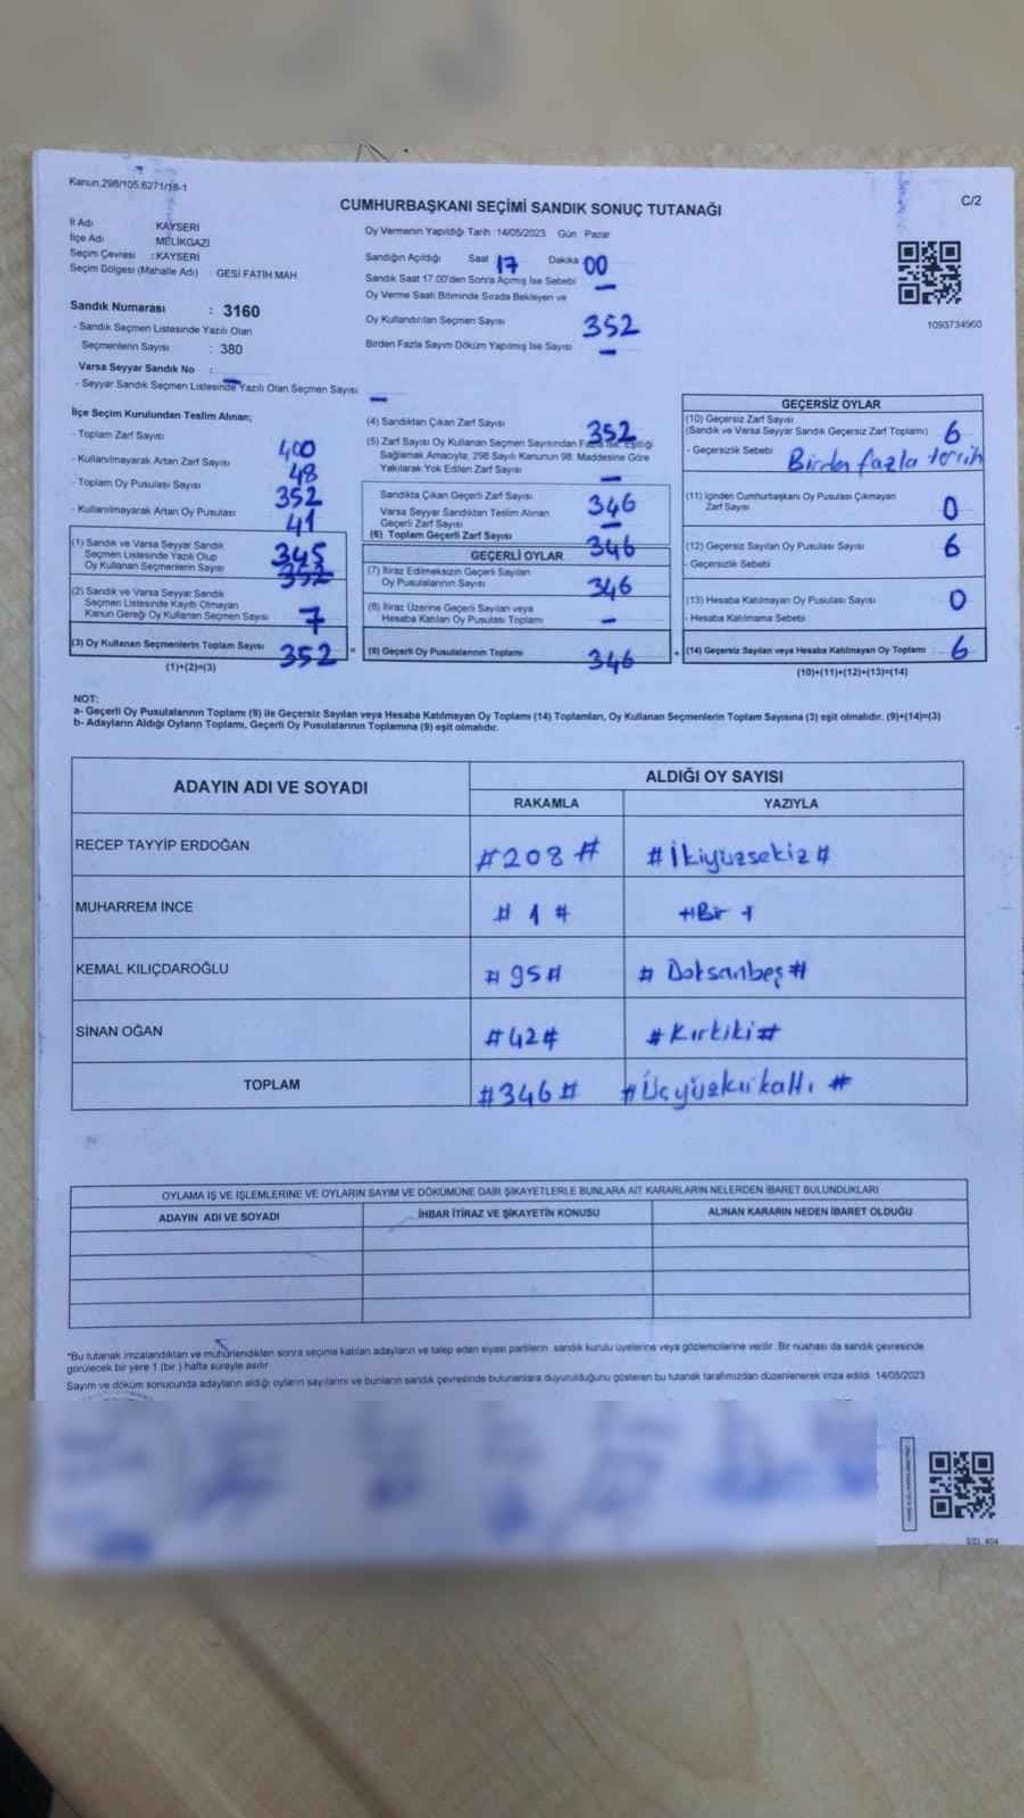 Kanun:298/105.6271/18-1
C/2
CUMHURBAŞKANI SEÇİMİ SANDIK SONUÇ TUTANAĞI
İl Adı KAYSERİ
İlçe Adı MELİKGAZİ
Seçim Çevresi : KAYSERİ
Seçim Bölgesi (Mahalle Adı) GESİ FATİH MAH
Sandık Numarası : 3160
- Sandık Seçmen Listesinde Yazılı Olan
Seçmenlerin Sayısı : 380
Varsa Seyyar Sandık No :
- Seyyar Sandık Seçmen Listesinde Yazılı Olan Seçmen Sayısı -
Oy Vermenin Yapıldığı Tarih :14/05/2023 Gün Pazar
Sandığın Açıldığı Saat 17 Dakika 00
Sandık Saat 17.00'den Sonra Açmış İse Sebebi -
Oy Verme Saati Bitiminde Sırada Bekleyen ve
Oy Kullandırılan Seçmen Sayısı 352
Birden Fazla Sayım Döküm Yapılmış İse Sayısı -
1093734960
İlçe Seçim Kurulundan Teslim Alınan;
- Toplam Zarf Sayısı 400
- Kullanılmayarak Artan Zarf Sayısı 48
- Toplam Oy Pusulası Sayısı 352
- Kullanılmayarak Artan Oy Pusulası 41
(1) Sandık ve Varsa Seyyar Sandık
Seçmen Listesinde Yazılı Olup
Oy Kullanan Seçmenlerin Sayısı 345
(2) Sandık ve Varsa Seyyar Sandık
Seçmen Listesinde Kayıtlı Olmayan
Kanun Gereği Oy Kullanan Seçmen Sayısı 7
(3) Oy Kullanan Seçmenlerin Toplam Sayısı 352 =
(1)+(2)=(3)
(4) Sandıktan Çıkan Zarf Sayısı 352
(5) Zarf Sayısı Oy Kullanan Seçmen Sayısından Fazla İse, Eşitliği
Sağlamak Amacıyla, 298 Sayılı Kanunun 98. Maddesine Göre
Yakılarak Yok Edilen Zarf Sayısı -
Sandıkta Çıkan Geçerli Zarf Sayısı 346
Varsa Seyyar Sandıktan Teslim Alınan
Geçerli Zarf Sayısı -
(6) Toplam Geçerli Zarf Sayısı 346
GEÇERLİ OYLAR
(7) İtiraz Edilmeksizin Geçerli Sayılan
Oy Pusulalarının Sayısı 346
(8) İtiraz Üzerine Geçerli Sayılan veya
Hesaba Katılan Oy Pusulası Toplamı -
(9) Geçerli Oy Pusulalarının Toplamı 346 +
GEÇERSİZ OYLAR
(10) Geçersiz Zarf Sayısı
(Sandık ve Varsa Seyyar Sandık Geçersiz Zarf Toplamı) 6
- Geçersizlik Sebebi Birden fazla tercih
(11) İçinden Cumhurbaşkanı Oy Pusulası Çıkmayan
Zarf Sayısı 0
(12) Geçersiz Sayılan Oy Pusulası Sayısı 6
- Geçersizlik Sebebi
(13) Hesaba Katılmayan Oy Pusulası Sayısı 0
- Hesaba Katılmama Sebebi
(14) Geçersiz Sayılan veya Hesaba Katılmayan Oy Toplamı 6
(10)+(11)+(12)+(13)=(14)
NOT:
a- Geçerli Oy Pusulalarının Toplamı (9) ile Geçersiz Sayılan veya Hesaba Katılmayan Oy Toplamı (14) Toplamları, Oy Kullanan Seçmenlerin Toplam Sayısına (3) eşit olmalıdır. (9)+(14)=(3)
b- Adayların Aldığı Oyların Toplamı, Geçerli Oy Pusulalarının Toplamına (9) eşit olmalıdır.
ADAYIN ADI VE SOYADI ALDIĞI OY SAYISI
RAKAMLA YAZIYLA
RECEP TAYYİP ERDOĞAN #208# #İkiyüzsekiz#
MUHARREM İNCE #1# #Bir#
KEMAL KILIÇDAROĞLU #95# #Doksanbeş#
SİNAN OĞAN #42# #Kırkiki#
TOPLAM #346# #Üçyüzkırkaltı#
OYLAMA İŞ VE İŞLEMLERİNE VE OYLARIN SAYIM VE DÖKÜMÜNE DAİR ŞİKAYETLERLE BUNLARA AİT KARARLARIN NELERDEN İBARET BULUNDUKLARI
ADAYIN ADI VE SOYADI İHBAR İTİRAZ VE ŞİKAYETİN KONUSU ALINAN KARARIN NEDEN İBARET OLDUĞU
*Bu tutanak imzalandıktan ve mühürlendikten sonra seçime katılan adayların ve talep eden siyasi partilerin sandık kurulu üyelerine veya gözlemcilerine verilir. Bir nüshası da sandık çevresinde
görülecek bir yere 1 (bir) hafta süreyle asılır.
Sayım ve döküm sonucunda adayların aldığı oyların sayılarını ve bunların sandık çevresinde bulunanlara duyurulduğunu gösteren bu tutanak tarafımızdan düzenlenerek imza edildi. 14/05/2023